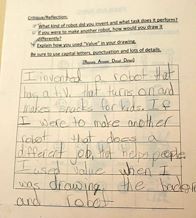 Critique/Reflection:
What kind of robot did you invent and what task does it perform?
If you were to make another robot, how would you draw it
differently?
Explain how you used "Value" in your drawing.
Be sure to use capital letters, punctuation and lots of details.
I invented a robot that
has a t.v. that turns on and
makes snacks for kids. If
I were to make another
robot that does a
different job, that helps people.
I used value when I
was drawing the backgr
and robot